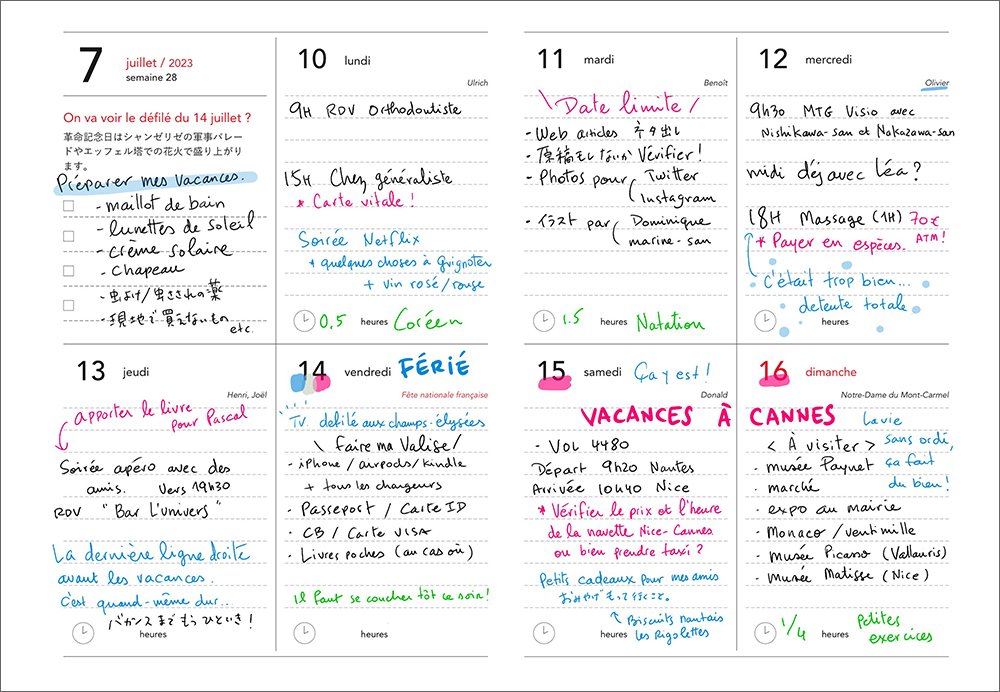 7
juillet / 2023
semaine 28
On va voir le défilé du 14 juillet ?
革命記念日はシャンゼリゼの軍事パレー
ドやエッフェル塔での花火で盛り上がり
ます。
Préparer mes vacances.
- maillot de bain
- lunettes de soleil
- crème solaire
- chapeau
- 虫よけ/虫さされの薬
- 現地で買えないもの
etc.
10 lundi
Ulrich
9H RDV Orthodontiste
15H Chez généraliste
* Carte vitale !
Soirée Netflix
* quelques choses à grignoter
+ vin rosé/rouge
0,5 heures Coréen
11 mardi
Benoît
\ Date limite /
- Web articles ネタ出し
- 原稿もしないか Vérifier !
- Photos pour ( Twitter
Instagram
- イラスト par ( Dominique
marine-san
1.5 heures Natation
12 mercredi
Olivier
9h30 MTG Visio avec
Nishikawa-san et Nakazawa-san
midi déj avec Léa ?
18H Massage (1H) 70€
* Payer en espèces. ATM !
C'était trop bien...
detente totale
heures
13 jeudi
Henri, Joël
apporter le livre
pour Pascal
Soirée apéro avec des
amis. Vers 19h30
RDV "Bar L'univers"
La dernière ligne droite
avant les vacances.
C'est quand-même dur...
バカンスまでもうひといき!
heures
14 vendredi FÉRIÉ
Fête nationale française
TV. défilé aux champs-élysées
\ Faire ma Valise /
- iPhone / airpods/kindle
+ tous les chargeurs
- Passeport / Carte ID
- CB / Carte VISA
- Livres poches (au cas où)
Il faut se coucher tôt ce soir!
heures
15 samedi Ça y est !
Donald
VACANCES À CANNES
- VOL 4480
Départ 9h20 Nantes
Arrivée 10H40 Nice
* Vérifier le prix et l'heure
de la navette Nice-Cannes
ou bien prendre taxi ?
Petits cadeaux pour mes amis
おみやげもって行くこと。
↑ Biscuits nantais
les Rigolettes
heures
16 dimanche
Notre-Dame du Mont-Carmel
< À visiter >
- musée Paynet
- marché
- expo au mairie
- Monaco / ventimille
- musée Picasso (Vallauris)
- musée Matisse (Nice)
La vie
sans ordi,
ça fait
du bien!
1/4 heures Petites
exercices